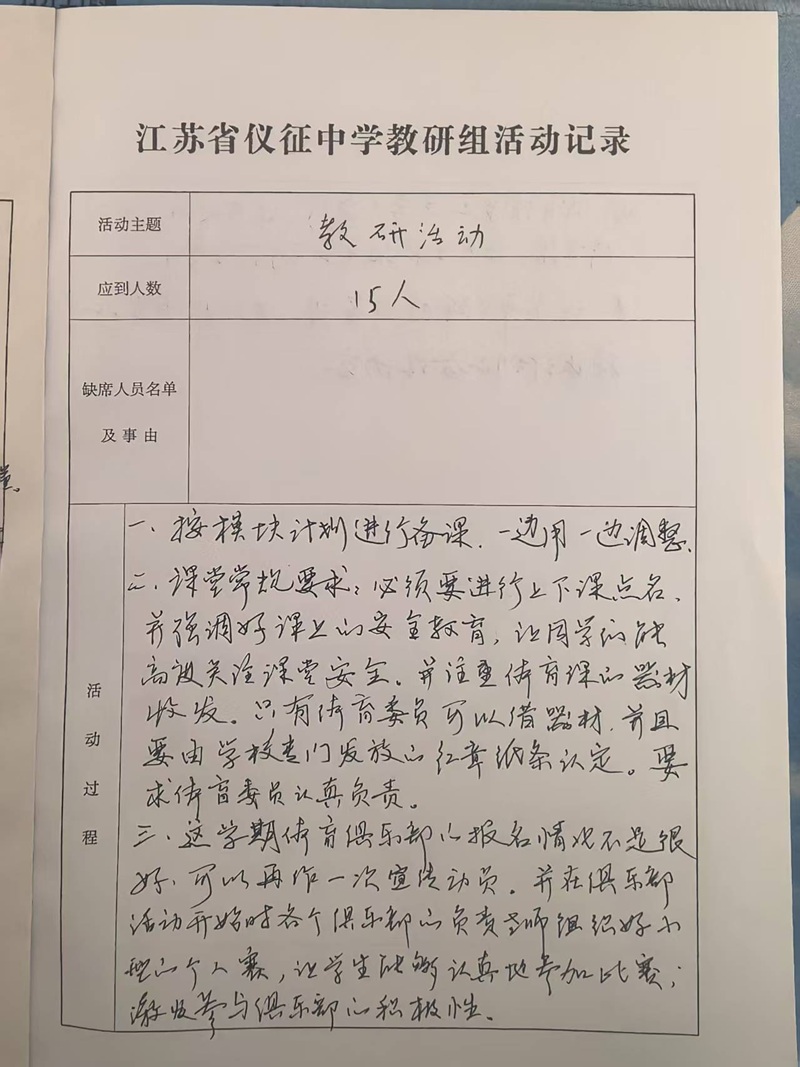 江苏省仪征中学教研组活动记录
活动主题
教研活动
应到人数
15人
缺席人员名单
及事由
活动过程
一、按模块计划进行备课,一边用一边调整。
二、课堂常规要求:必须要进行上下课点名,
并强调好课上的安全教育,让同学们能
高效关注课堂安全。并注重体育课的器材
收发。只有体育委员可以借器材,并且
要由学校专门发放的红章纸条认定。要
求体育委员认真负责。
三、这学期体育俱乐部的报名情况不是很
好,可以再作一次宣传动员。并在俱乐部
活动开始时各个俱乐部的负责老师组织好小
型的个人赛,让学生能够认真地参加比赛,
激发参与俱乐部的积极性。